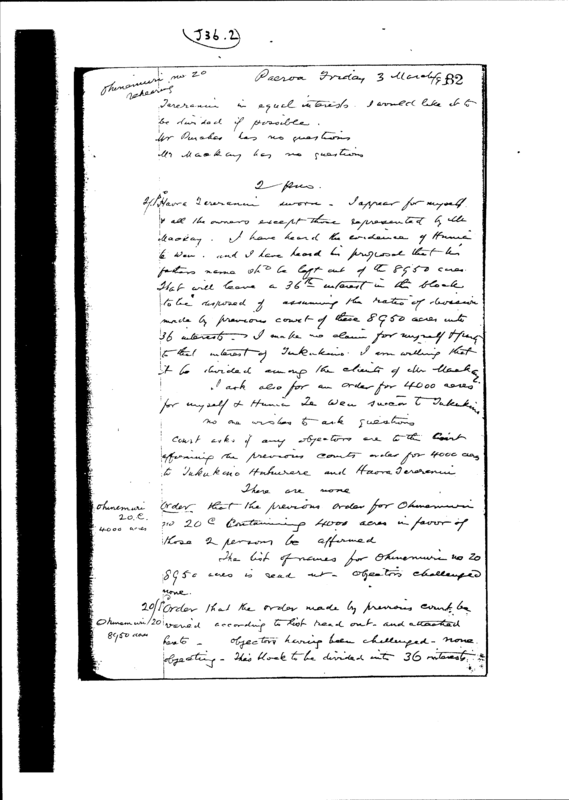 J36.2
Ohinemuri no 20
rehearing
Paeroa Friday 3 March 82
Tereranui in equal interests. I would like it to
be divided if possible.
Mr has no questions
Mr Mackay has no questions
2 pm.
Haora Tereranui sworn - I appear for myself
& all the owners except those represented by Mr
Mackay. I have heard the evidence of Hunia
te Weu. and I have heard his proposal that his
fathers name shd be left out of the 8950 acres
That will leave a 36th interest in the block
to be disposed of assuming the ratio of division
made by previous court of these 8950 acres into
36 interests. I make no claim for myself &
to that interest of Tukukino. I am willing that
it be divided among the clients of Mr Mackay
I ask also for an order for 4000 acres
for myself & Hunia Te Weu to Tukukino
no one wishes to ask questions
Court asks if any objectors are to the Court
affirming the previous courts order for 4000 acres
to Tukukino and Haora Tereranui
There are none
Ohinemuri
20.C.
4000 acres
Order that the previous order for Ohinemuri
no 20 C Containing 4000 acres in favor of
those 2 persons be affirmed
The list of names for Ohinemuri no 20
8950 acres is read out - objectors challenged
none.
Ohinemuri 20
8950 acres
20/- Order that the order made by previous court be
varied according to list read out - and attached
hereto - objectors having been challenged - none
objecting - This block to be divided into 36 interests.